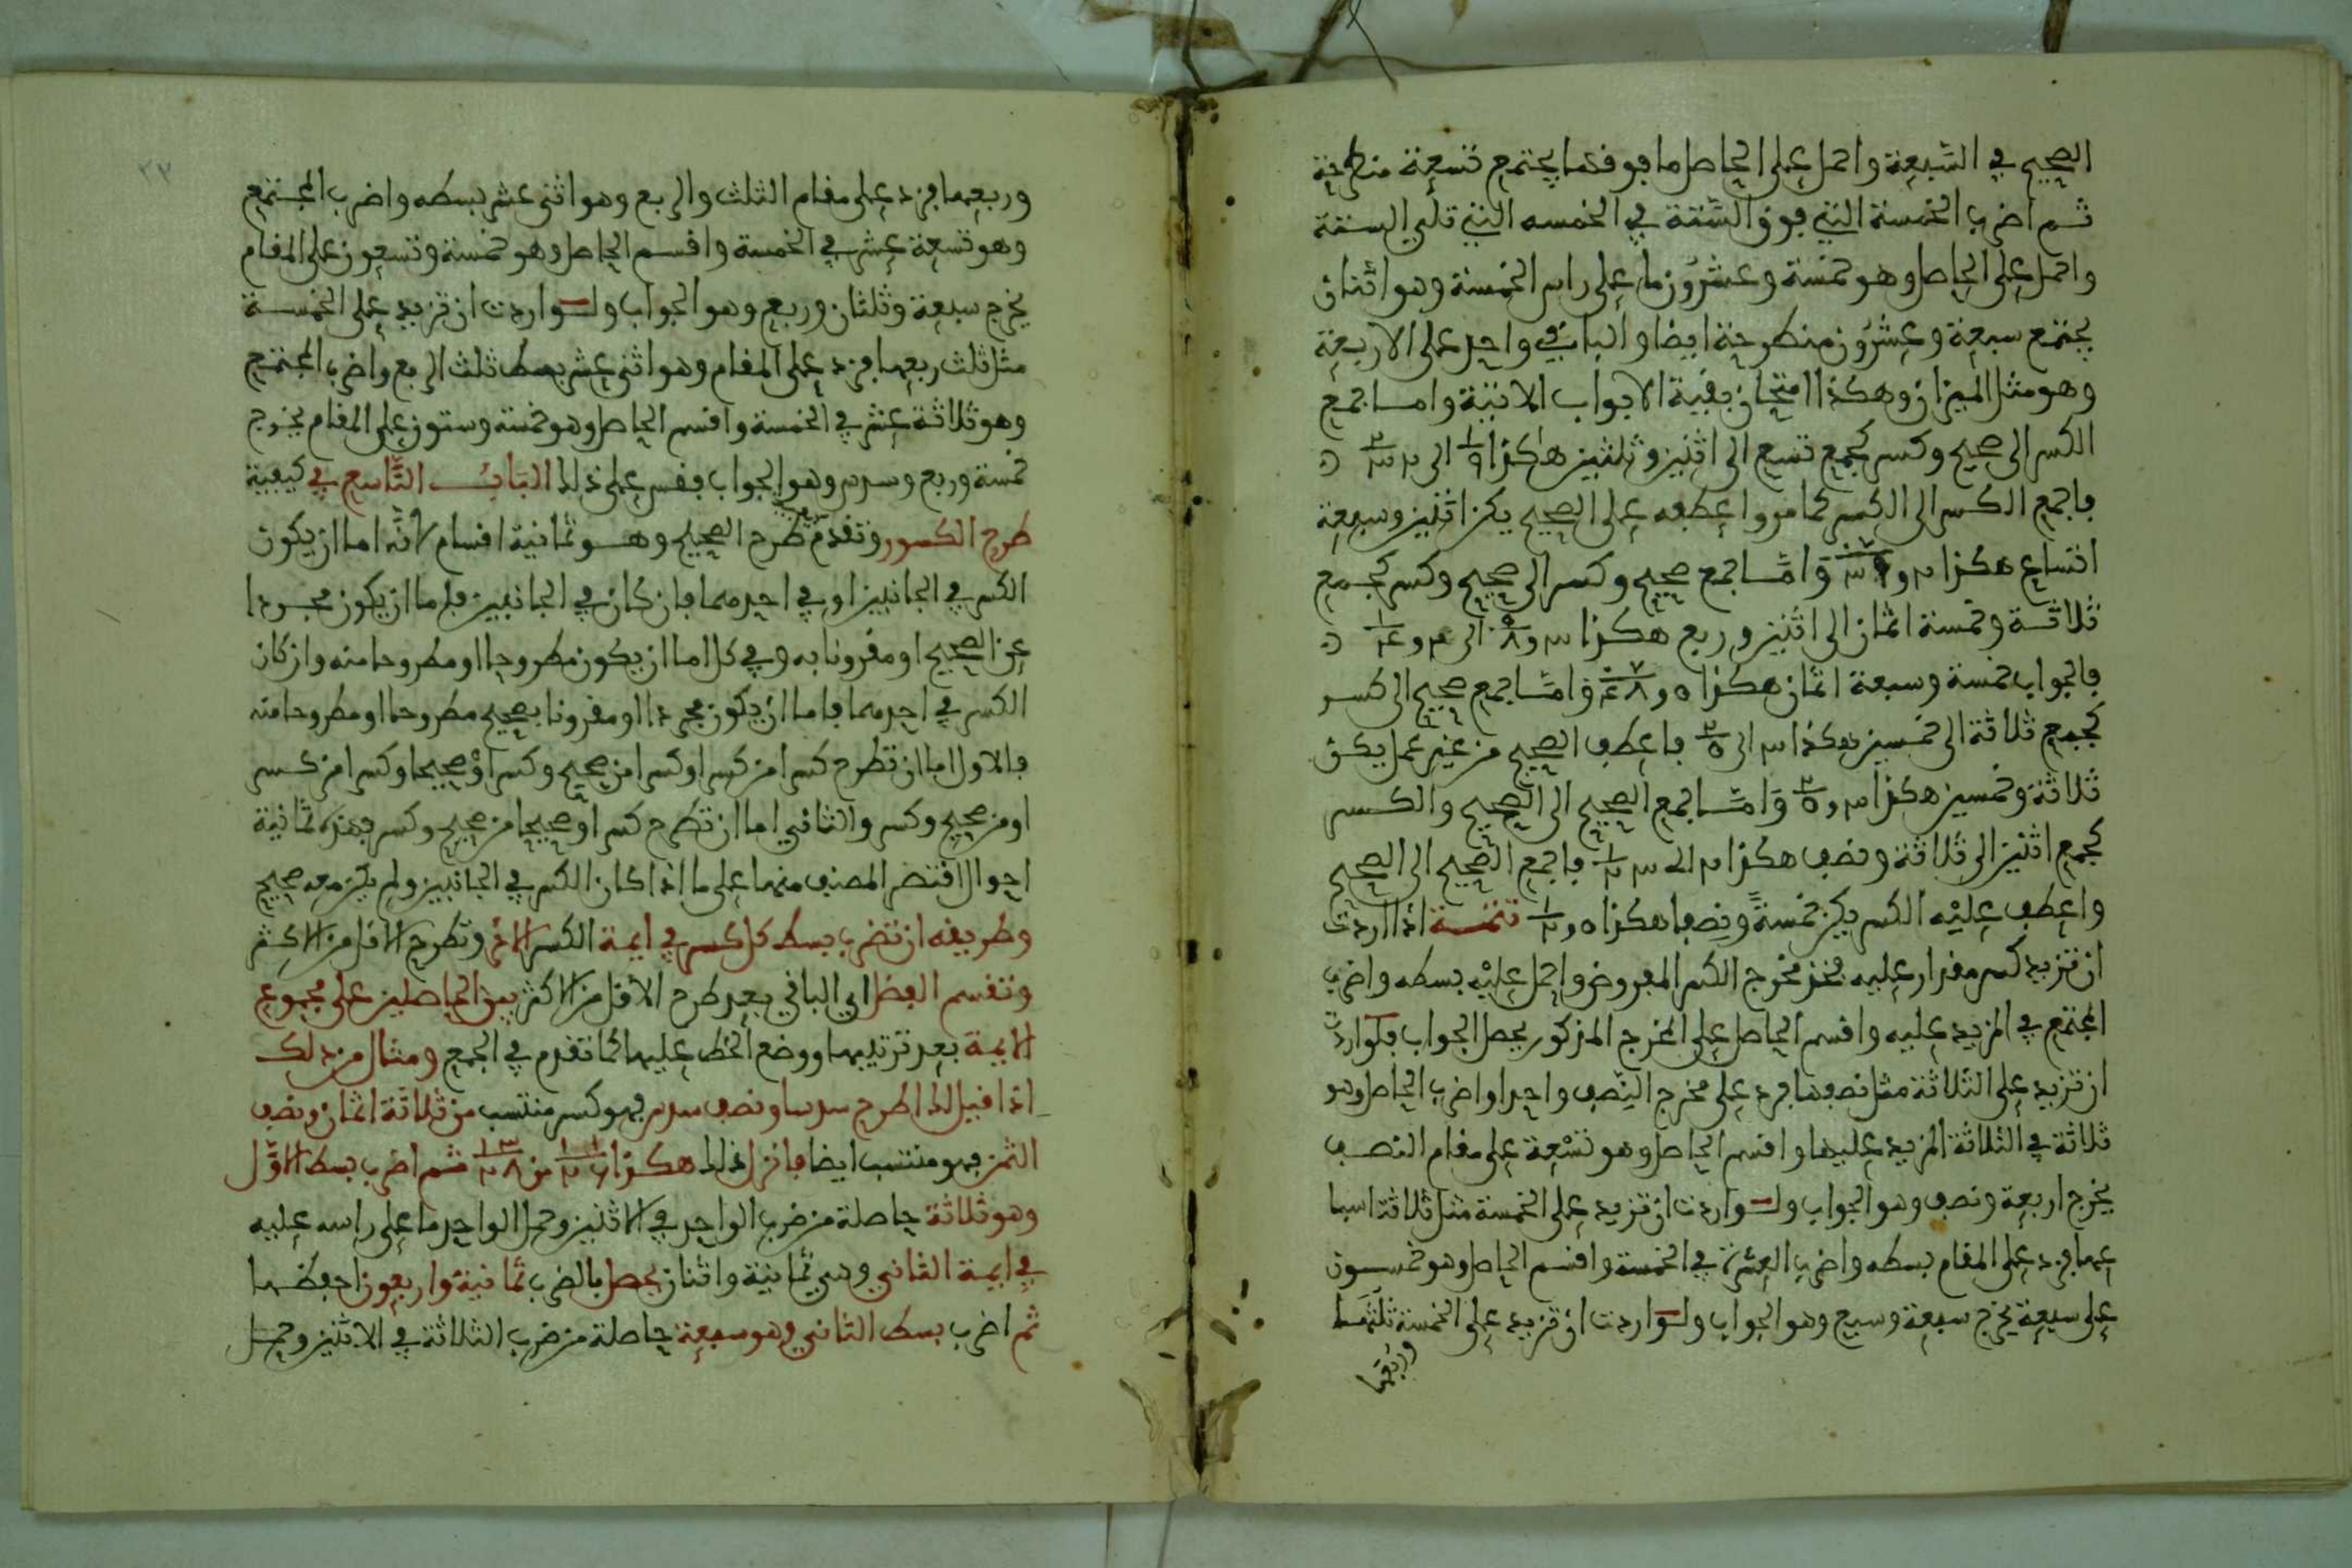 الصحيح في السبعة واحمل على الحاصل ما فوقها يجتمع تسعة منطرحة
ثم اضرب الخمسة التي فوق الستة في الخمسه التي تلي الستة
واحمل على الحاصل وهو خمسة وعشرون ما على راس الخمسة وهو اثنان
يجتمع سبعة وعشرون منطرحة ايضا والباقي واحد على الاربعة
وهو مثل الميزان وهكذا امتحان بقية الابواب الاتية واما جمع
الكسر الى صحيح وكسر كجمع تسع الى اثنين وثلثين هكذا
فاجمع الكسر الى الكسر كما مر واعطفه على الصحيح يكن اثنين وسبعة
اتساع هكذا واما جمع صحيح وكسر الى صحيح وكسر كجمع
ثلاثة وخمسة اثمان الى اثنين وربع هكذا
فالجواب خمسة وسبعة اثمان هكذا واما جمع صحيح الى كسر
كجمع ثلاثة الى خمسين هكذا فاعطف الصحيح من غير عمل يكن
ثلاثة وخمسين هكذا واما جمع الصحيح الى الصحيح والكسر
كجمع اثنين الى ثلاثة ونصف هكذا فاجمع الصحيح الى الصحيح
واعطف عليه الكسر يكن خمسة ونصفا هكذا تتمة اذا اردت
ان تزيد كسر مقدار عليه فخذ مخرج الكسر المفروض واحمل عليه بسطه واضرب
المجتمع في المزيد عليه واقسم الحاصل على المخرج المذكور يحصل الجواب فلو اردت
ان تزيد على الثلاثة مثل نصفها فزد على مخرج النصف واحدا واضرب الحاصل وهو
ثلاثة في الثلاثة المزيد عليها واقسم الحاصل وهو تسعة على مقام النصف
يخرج اربعة ونصف وهو الجواب ولو اردت ان تزيد على الخمسة مثل ثلاثة اسبا
عها فزد على المقام بسطه واضرب العشرة في الخمسة واقسم الحاصل وهو خمسون
على سبعة يخرج سبعة وسبع وهو الجواب ولو اردت ان تزيد على الخمسة ثلثها
وربعها
وربعها فزد على مقام الثلث والربع وهو اثنى عشر بسطه واضرب المجتمع
وهو تسعة عشر في الخمسة واقسم الحاصل وهو خمسة وتسعون على المقام
يخرج سبعة وثلثان وربع وهو الجواب ولو اردت ان تزيد على الخمسة
مثل ثلث ربعها فزد على المقام وهو اثنى عشر بسط ثلث الربع واضرب المجتمع
وهو ثلاثة عشر في الخمسة واقسم الحاصل وهو خمسة وستون على المقام يخرج
خمسة وربع وسدس وهو الجواب فقس على ذلك الباب التاسع في كيفية
طرح الكسور وتقدم طرح الصحيح وهو ثمانية اقسام لانه اما ان يكون
الكسر في الجانبين او في احدهما فان كان في الجانبين فاما ان يكون مجردا
عن الصحيح او مقرونا به وفي كل اما ان يكون مطروحا او مطروحا منه وان كان
الكسر في احدهما فاما ان يكون مجردا او مقرونا بصحيح مطروحا او مطروحا منه
فالاول اما ان تطرح كسرا من كسر او كسرا من صحيح وكسر او صحيحا وكسرا من كسر
او من صحيح وكسر والثاني اما ان تطرح كسرا او صحيحا من صحيح وكسر فهذه ثمانية
احوال اقتصر المصنف منها على ما اذا كان الكسر في الجانبين ولم يكن معه صحيح
وطريقه ان تضرب بسط كل كسر في ايمة الكسر الاخر وتطرح الاقل من الاكثر
وتقسم الفضل اي الباقي بعد طرح الاقل من الاكثر بين الحاصلين على مجموع
الايمة بعد ترتيبها ووضع الخط عليها كما تقدم في الجمع ومثال من ذلك
اذا قيل لك اطرح سدسا ونصف سدس فهو كسر منتسب من ثلاثة اثمان ونصف
الثمن فهو منتسب ايضا فانزل ذلك هكذا ثم اضرب بسط الاول
وهو ثلاثة حاصلة من ضرب الواحد في الاثنين وحمل الواحد ما على راسه عليه
في ايمة الثاني وهي ثمانية واثنان يحصل بالضرب ثمانية واربعون احفظها
ثم اضرب بسط الثاني وهو سبعة حاصلة من ضرب الثلاثة في الاثنين وحمل